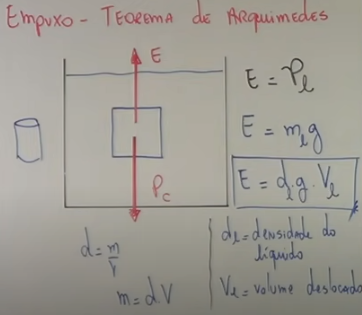 EMPUXO - TEOREMA de ARQUIMEDES
E
Pc
E = Pl
E = mlg
E = dl.g.Vl
d = m/V
m = d.V
dl = densidade do
líquido
Vl = volume deslocado